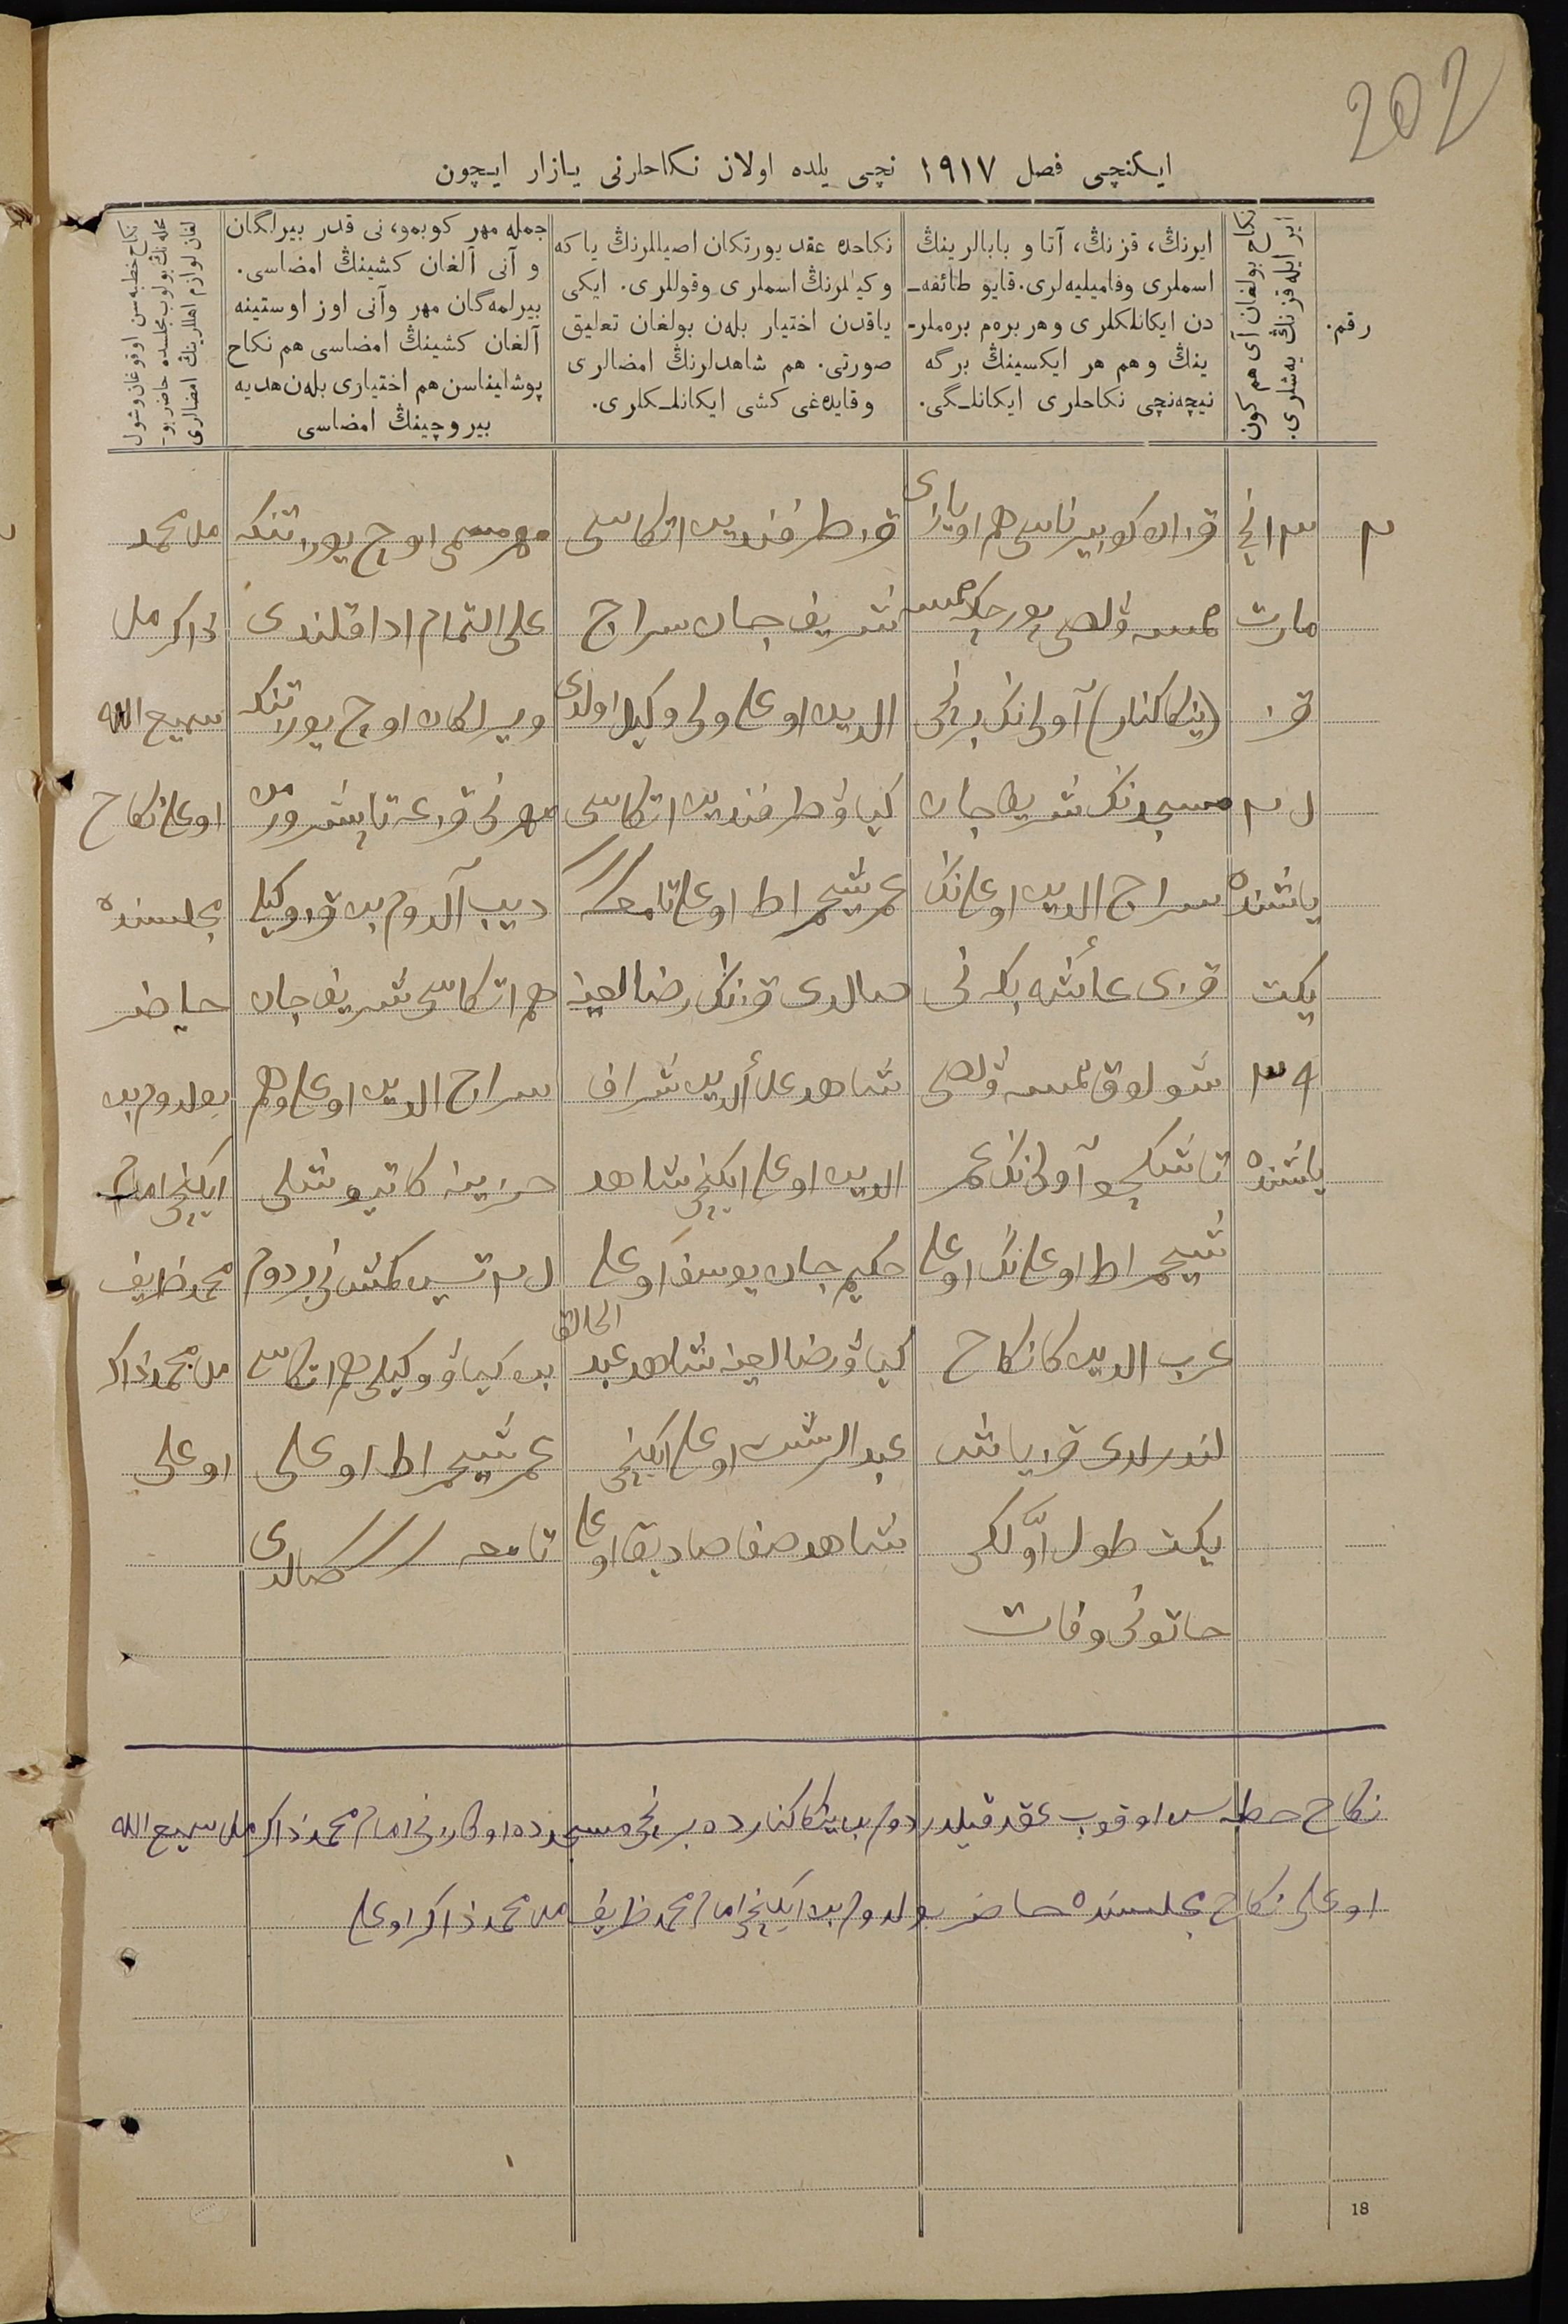 202
ایکنچی فصل ١٩١٧ نچی یلده اولان نکاحلرنی یازار ایچون
رقم.
نکاح بولغان آی هم کون
ایر ایله قزنڭ یه‌شلری.
ایرنڭ، قزنڭ، آتا و بابالرینڭ
اسملری وفامیلیه‌لری. قایو طائفه‌ـ
دن ایکانلکلری و هر بره‌م بره‌ملرـ
ینڭ و هم هر ایکسینڭ برگه
نیچه‌نچی نکاحلری ایکانلـگی.
نکاحده عقد یورتکان اصیللرنڭ یا که
وکیللرنڭ اسملری وقوللری. ایکی
یاقدن اختیار بله‌ن بولغان تعلیق
صورتی. هم شاهدلرنڭ امضالری
و قایده‌غی کشی ایکانلـکلری.
جمله مهر کوبمو، نی قدر بیرلگان
و آنی آلغان کشینڭ امضاسی.
بیرلمه‌گان مهر وآنی اوز اوستینه
آلغان کشینڭ امضاسی هم نکاح
پوشلیناسن هم اختیاری بله‌ن هدیه
بیروچینڭ امضاسی
نکاح خطبه‌سن اوقوغان وشول
محله‌نڭ بولوب مجلسده حاضر بوـ
لغان لوازم اهللرینڭ امضالری
٣
مارت
قز
یاشنده
یکت
یاشنده
قزان کوبیرناسی هم اویازی
(ینکا کنار) آولی‌نک برنچی
مسجدنک شریف جان
سراج الدین اوغلی‌نک
قزی عائشه بکه‌نی
آولی‌نک عمر
شیخمراط اوغلی‌نک اوغلی
عرب الدین‌کا نکاح
لندرلدی قز یاش
یکت طول اوّلکی
خاتونی وفات
قز طرفندین اتکاسی
شریف جان سراج
الدین اوغلی ولی وکیل اولدی
کیاو طرفندین اتکاسی
عمر شیخمراط اوغلی تامغا
صالدی قزنک رضالغینه
شاهد علأالدین شراف
الدین اوغلی ایکنچی شاهد
حکیم جان یوسف اوغلی
کیاو رضالغینه شاهد عبد الخالق
عبدالرشید اوغلی ایکنچی
شاهد صفا صادیق اوغلی
مهر مسمی اوچ یوز تنکه
علی التمام ادا قلندی
ویرلکان اوچ یوز تنکه
مهرنی قزغه تابشرورمن
دیب آلدوم بن قز وکیلی
هم اتکاسی شریف جان
سراج الدین اوغلی وهم
بن کیاو وکیلی هم اتکاسی
عمر شیخمراط اوغلی
تامغه صالدی
ملا محمد
ذاکر ملا
سمیع الله
اوغلی نکاح
مجلسنده
حاضر
بولدوم بن
ایکنچی امام
محمد ظریف
ملا محمد ذاکر
اوغلی
نکاح خطبه‌سن اوقوب عقد قیلدردوم بن ینکا کنارده برنچی مسجدده امام محمد ذاکر ملا سمیع الله
اوغلی نکاح مجلسنده حاضر بولدوم بن ایکنچی امام محمد ظریف ملا محمد ذاکر اوغلی
18